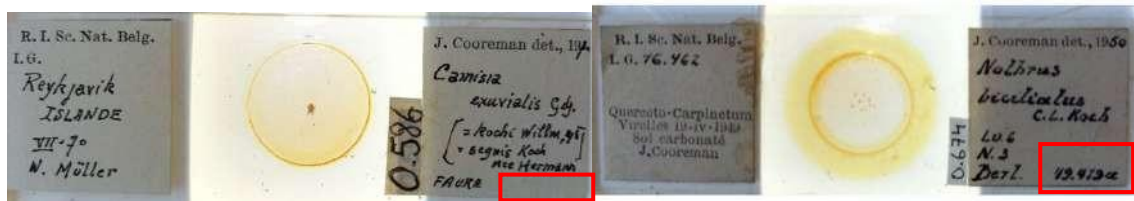 R. I. Sc. Nat. Belg.
I.G.
Reykjavik
ISLANDE
VII-70
W. Müller
0.586
J. Cooreman det., 19
Camisia
exuvialis
= Kochi Willm,
= segnis Koch
nec Hermann
FAURE
R. I. Sc. Nat. Belg.
I. G. 16.462
Querceto-Carpinetum
Virelles 19-iv-1949
Sol carbonaté
J. Cooreman
0.674
J. Cooreman det., 1950
Nothrus
C.L. Koch
N.3
Berl. 49.419a